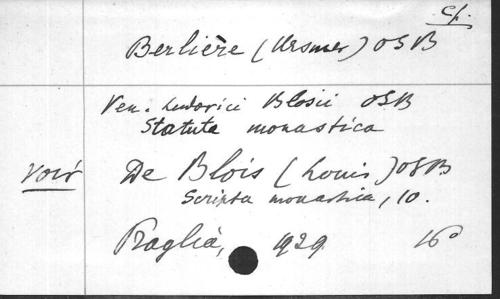 Cf.
Berlière (Ursmer) OSB
Ven. Ludovici Blosii OSB
Statuta monastica
voir De Blois (Louis) OSB
Scripta monastica, 10.
Praglia, 1929 16°